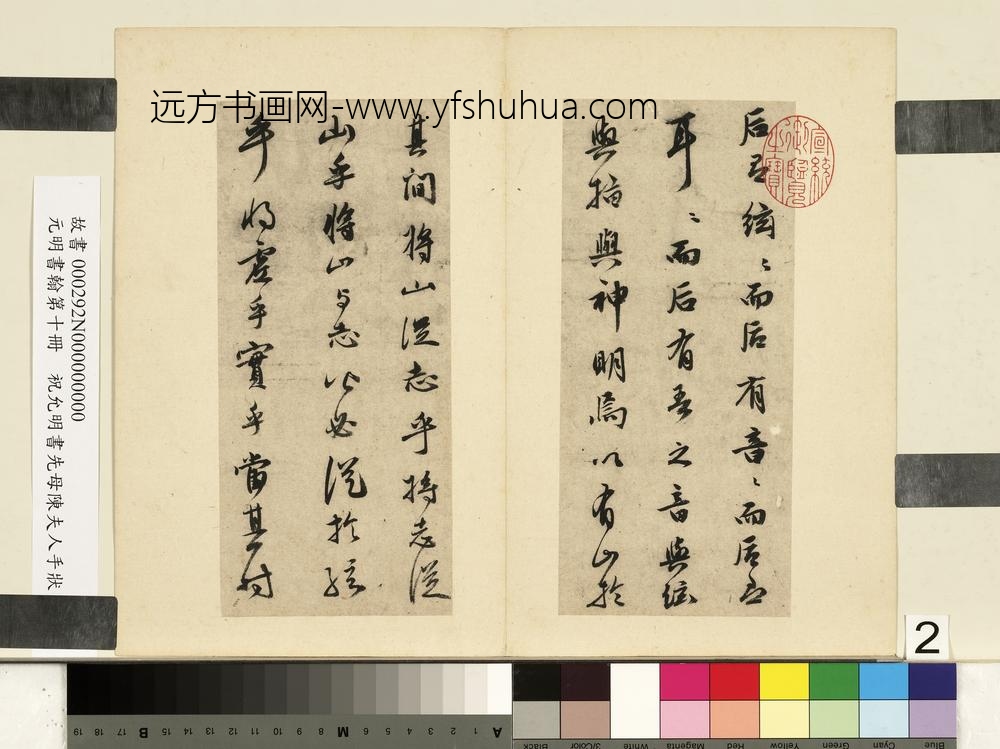 远方书画网-www.yfshuhua.com
后有絃〻而后有音〻而后
耳〻而后有吾之音與絃
與指與神明焉以有山於
其间將山從志乎將志從
山乎將山与志必從於絃
乎將虚乎實乎當其时
宣統御覽之寶
故書 000292N000000000
元明書翰第十冊 祝允明書先母陳夫人手狀
2
A 1 2 3 4 5 6 M 8 9 10 11 12 13 14 15 B 17 18 19
Black 3/Color White Magenta Red Yellow Green Cyan Blue